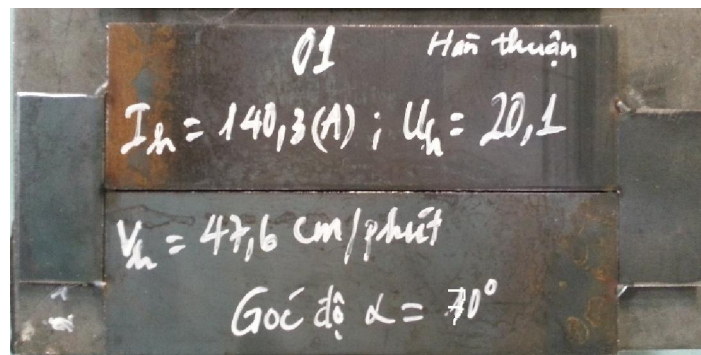 01 Hàn thuận
I_h = 140,3(A) ; U_h = 20,1
V_h = 47,6 cm/phút
Góc độ α = 70°